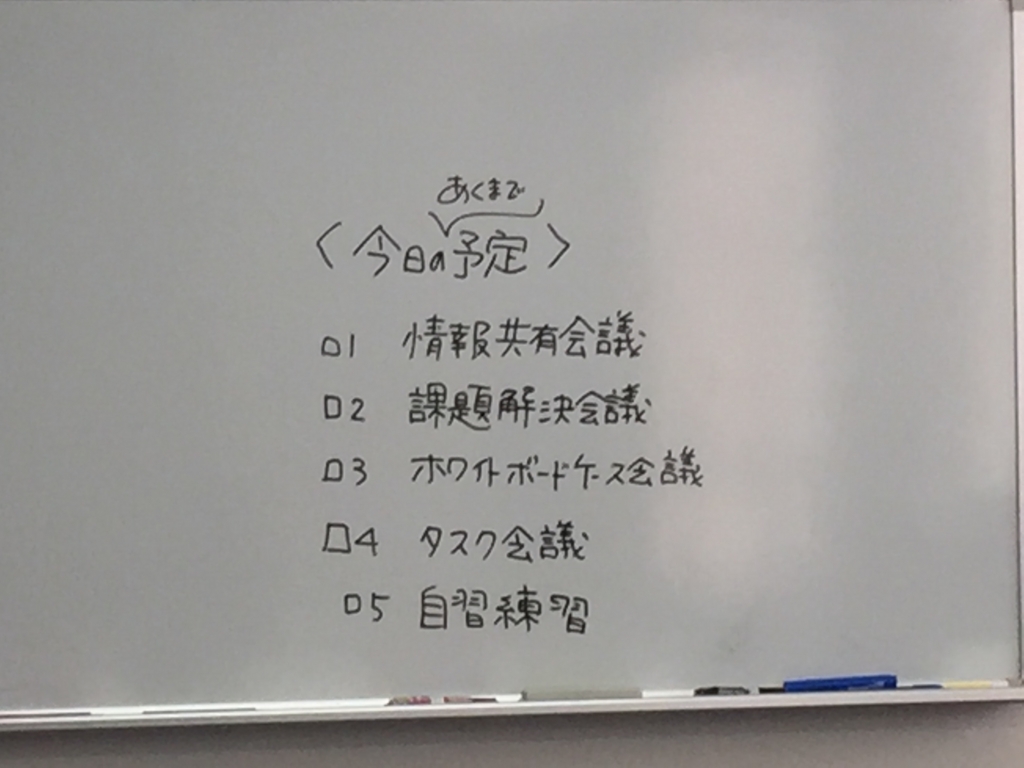 あくまで
〈今日の予定〉
□1 情報共有会議
□2 課題解決会議
□3 ホワイトボードケース会議
□4 タスク会議
□5 自習練習